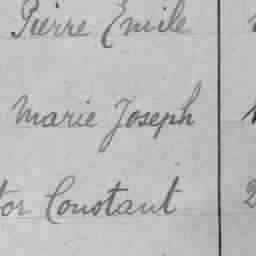 Pierre Emile
Marie Joseph
tor Constant 2